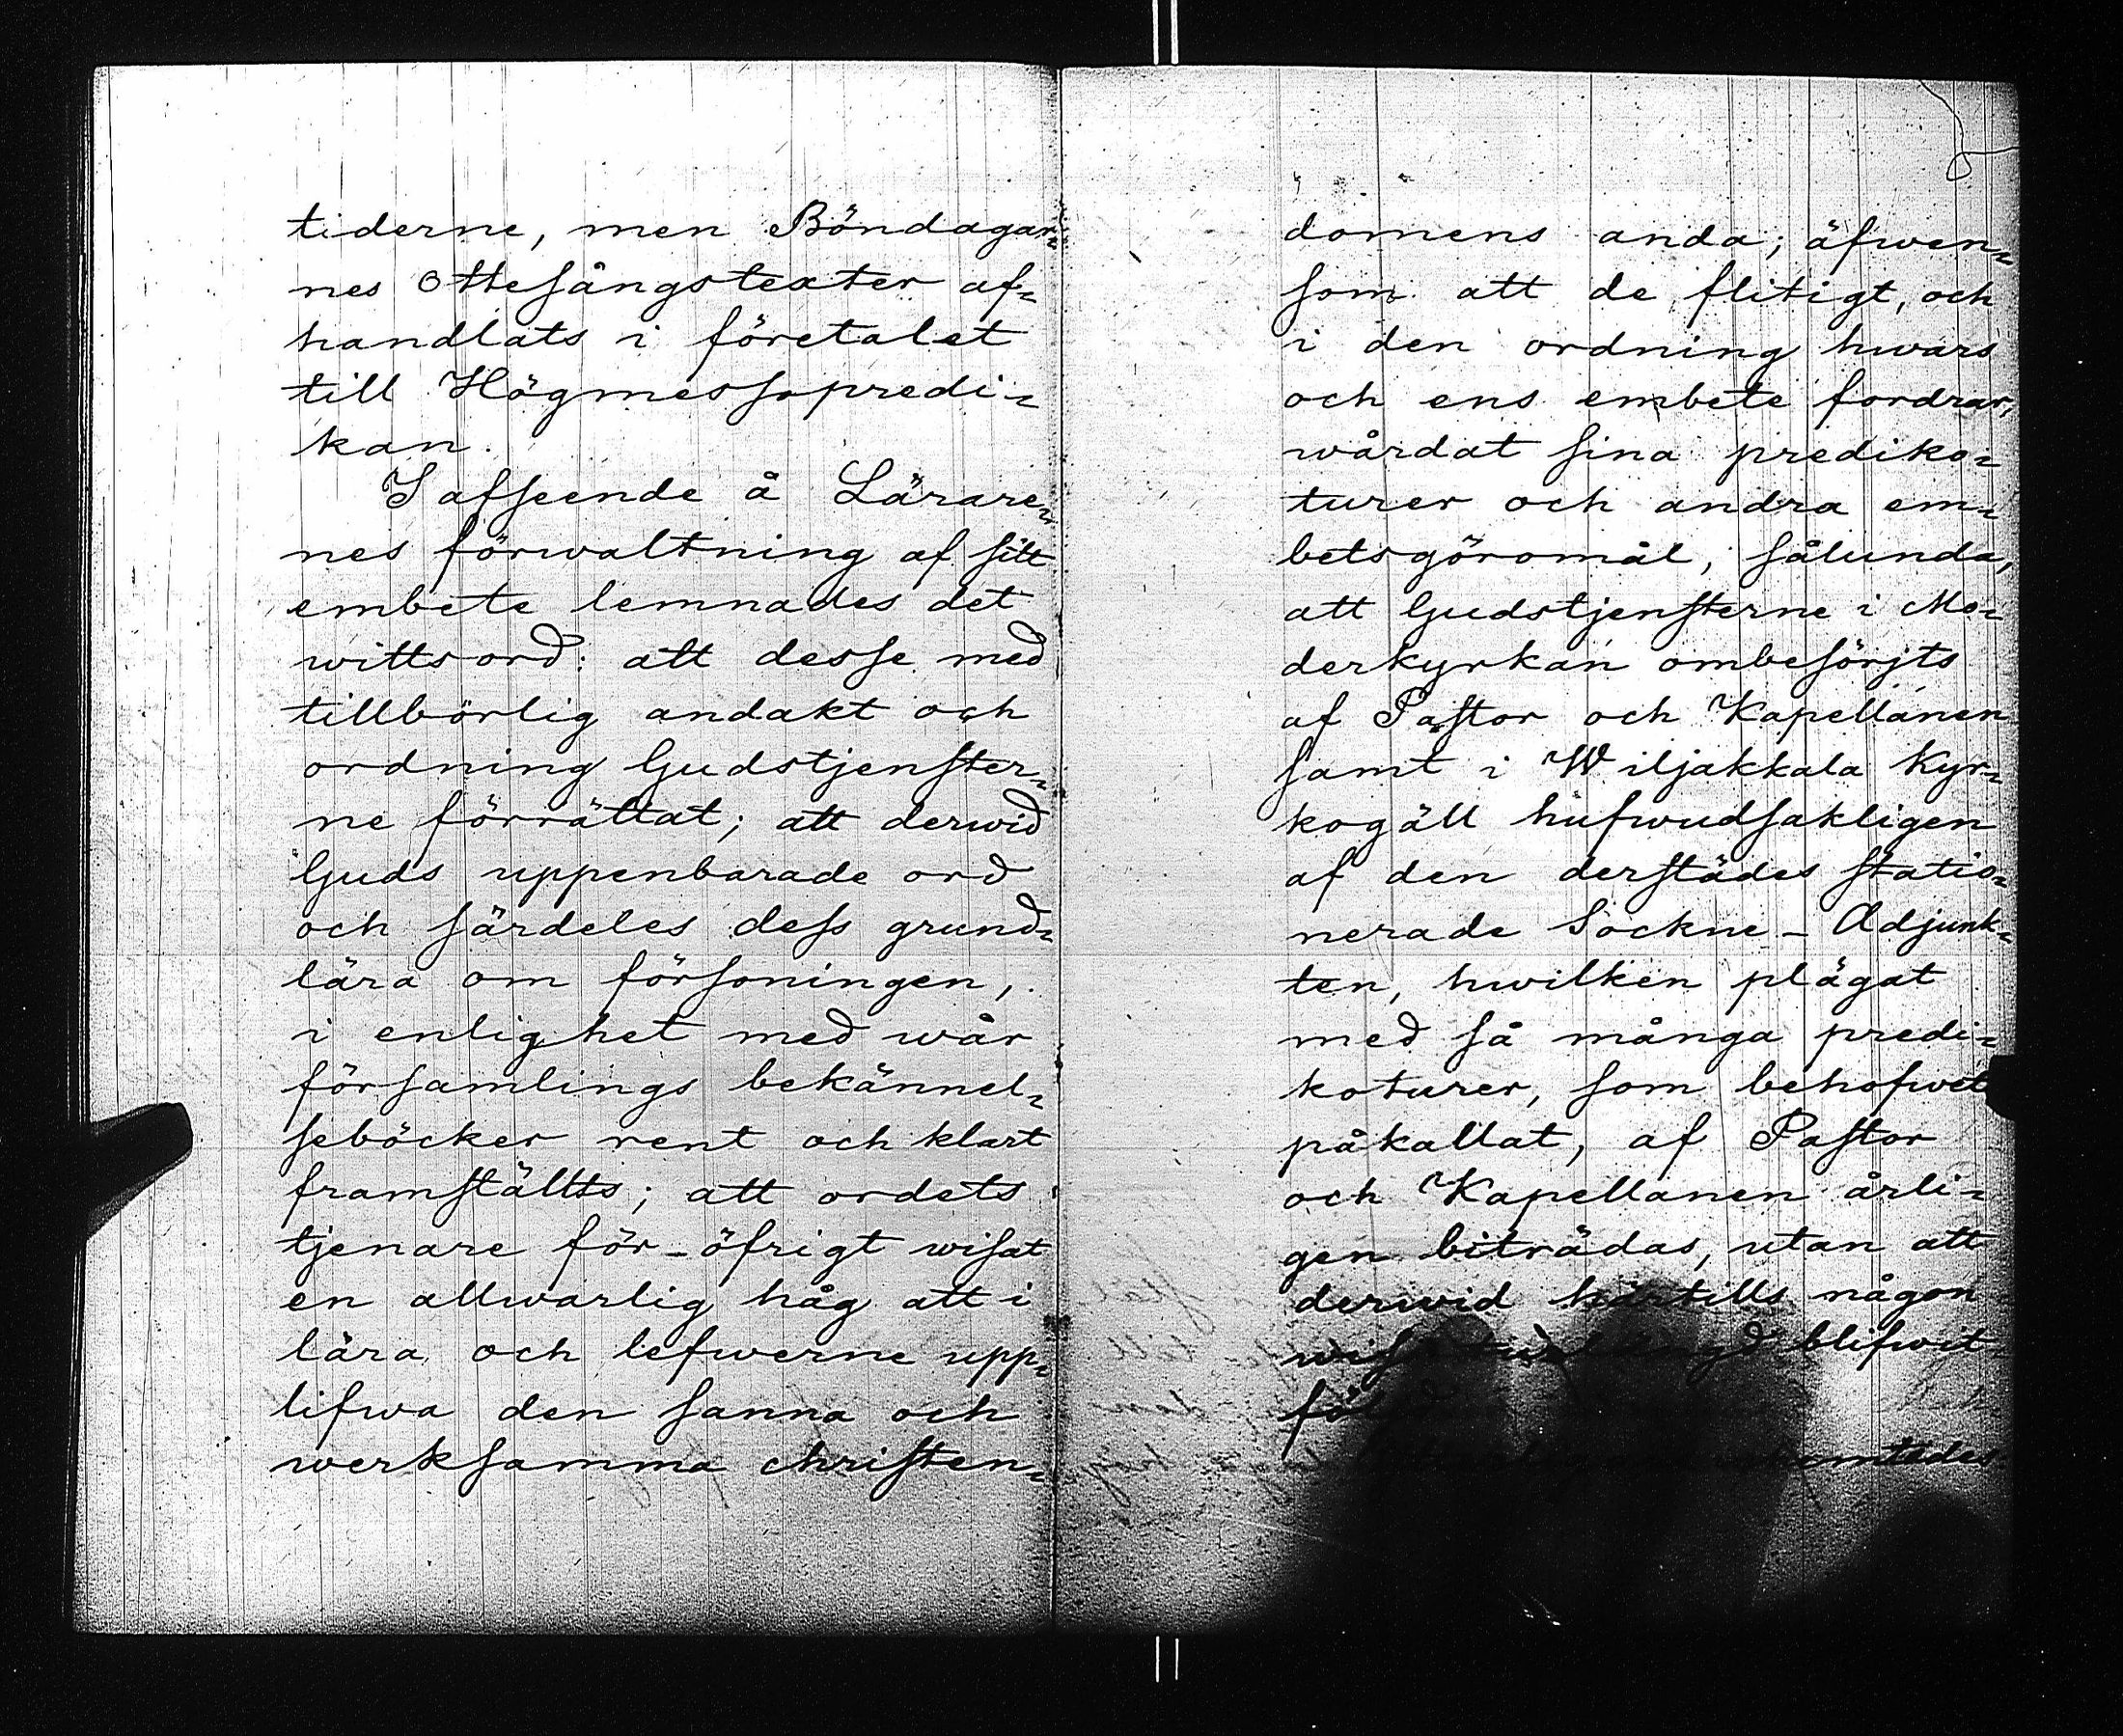 tiderne, men Böndagar-
nes Ottesångstexter af-
handlats i företalet
till Högmessopredi-
kan.
I afseende å Lärare-
nes förwaltning af sitt
embete lemnades det
wittsord: att desse med
tillbörlig andakt och
ordning Gudstjenster-
ne förrättat; att derwid
Guds uppenbarade ord
och särdeles dess grund-
lära om försoningen,
i enlighet med wår
församlings bekännel-
seböcker rent och klart
framställts; att ordets
tjenare för-öfrigt wisat
en allwarlig håg att i
lära och lefwerne upp-
lifwa den sanna och
werksamma christen-
domens anda; äfwen-
som att de flitigt, och
i den ordning hwars
och ens embete fordrar,
wårdat sina prediko-
turer och andra em-
betsgöromål; sålunda,
att Gudstjensterne i Mo-
derkyrkan ombesörjts
af Pastor och Kapellanen
samt i Wiljakkala Kyr-
kogäll hufwudsakligen
af den derstädes statio-
nerade Sockne-Adjunk-
ten, hwilken plägat
med så många predi-
koturer, som behofwet
påkallat, af Pastor
och Kapellanen årli-
gen biträdas, utan att
derwid härtills någon
blifwit